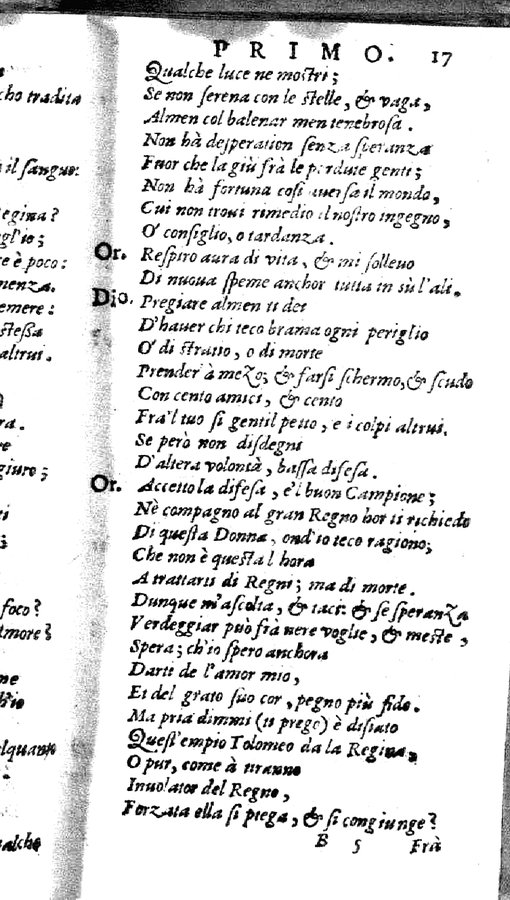 cho tradita
il sangue.
egina?
gl'io;
e è poco:
menza.
emere:
stessa
altrui.
ra.
re
giuro;
foco?
more?
me
lquanto
ualche
P R I M O. 17
Qualche luce ne mostri;
Se non serena con le stelle, & vaga,
Almen col balenar men tenebrosa.
Non hà desperation senza speranza
Fuor che la giù frà le perdute genti;
Non hà fortuna così auersa il mondo,
Cui non troui rimedio il nostro ingegno,
O' consiglio, o tardanza.
Or. Respiro aura di vita, & mi solleuo
Di nuoua speme anchor tutta in sù l'ali.
Dio. Pregiare almen ti dei
D'hauer chi teco brama ogni periglio
O' di stratio, o di morte
Prender à mezo; & farsi schermo, & scudo
Con cento amici, & cento
Fra'l tuo sì gentil petto, e i colpi altrui.
Se però non disdegni
D'altera volontà, bassa difesa.
Or. Accetto la difesa, e'l buon Campione;
Nè compagno al gran Regno hor ti richiedo
Di questa Donna, ond'io teco ragiono;
Che non è questa l'hora
A trattarti di Regni; ma di morte.
Dunque m'ascolta, & taci: & se speranza
Verdeggiar può frà nere voglie, & meste,
Spera; ch'io spero anchora
Darti de l'amor mio,
Et del grato suo cor, pegno più fido.
Ma pria dimmi (ti prego) è disiato
Quest'empio Tolomeo da la Regina,
O pur, come à tiranno
Inuolator del Regno,
Forzata ella si piega, & si congiunge?
B 5 Frà